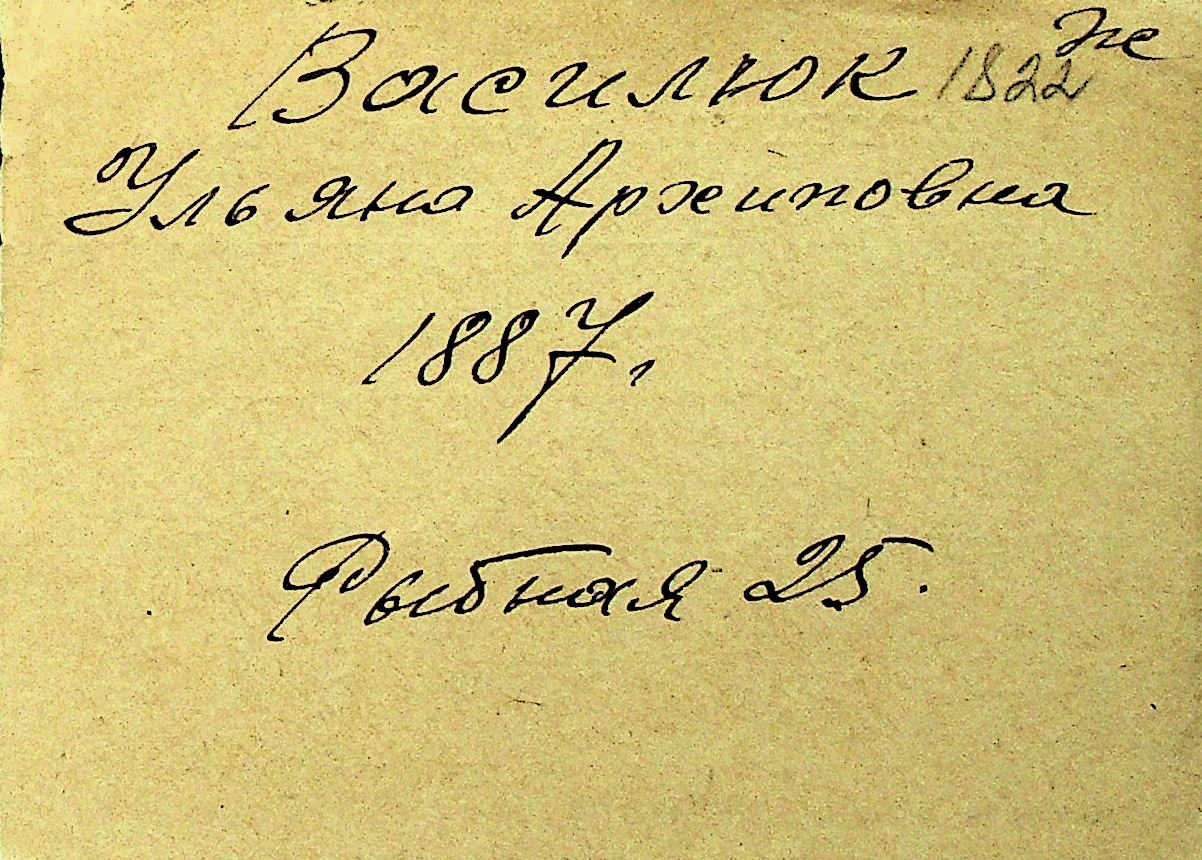 Василюк 1822 Же
Ульяна Архиповна
1887г
Рыбная 25.